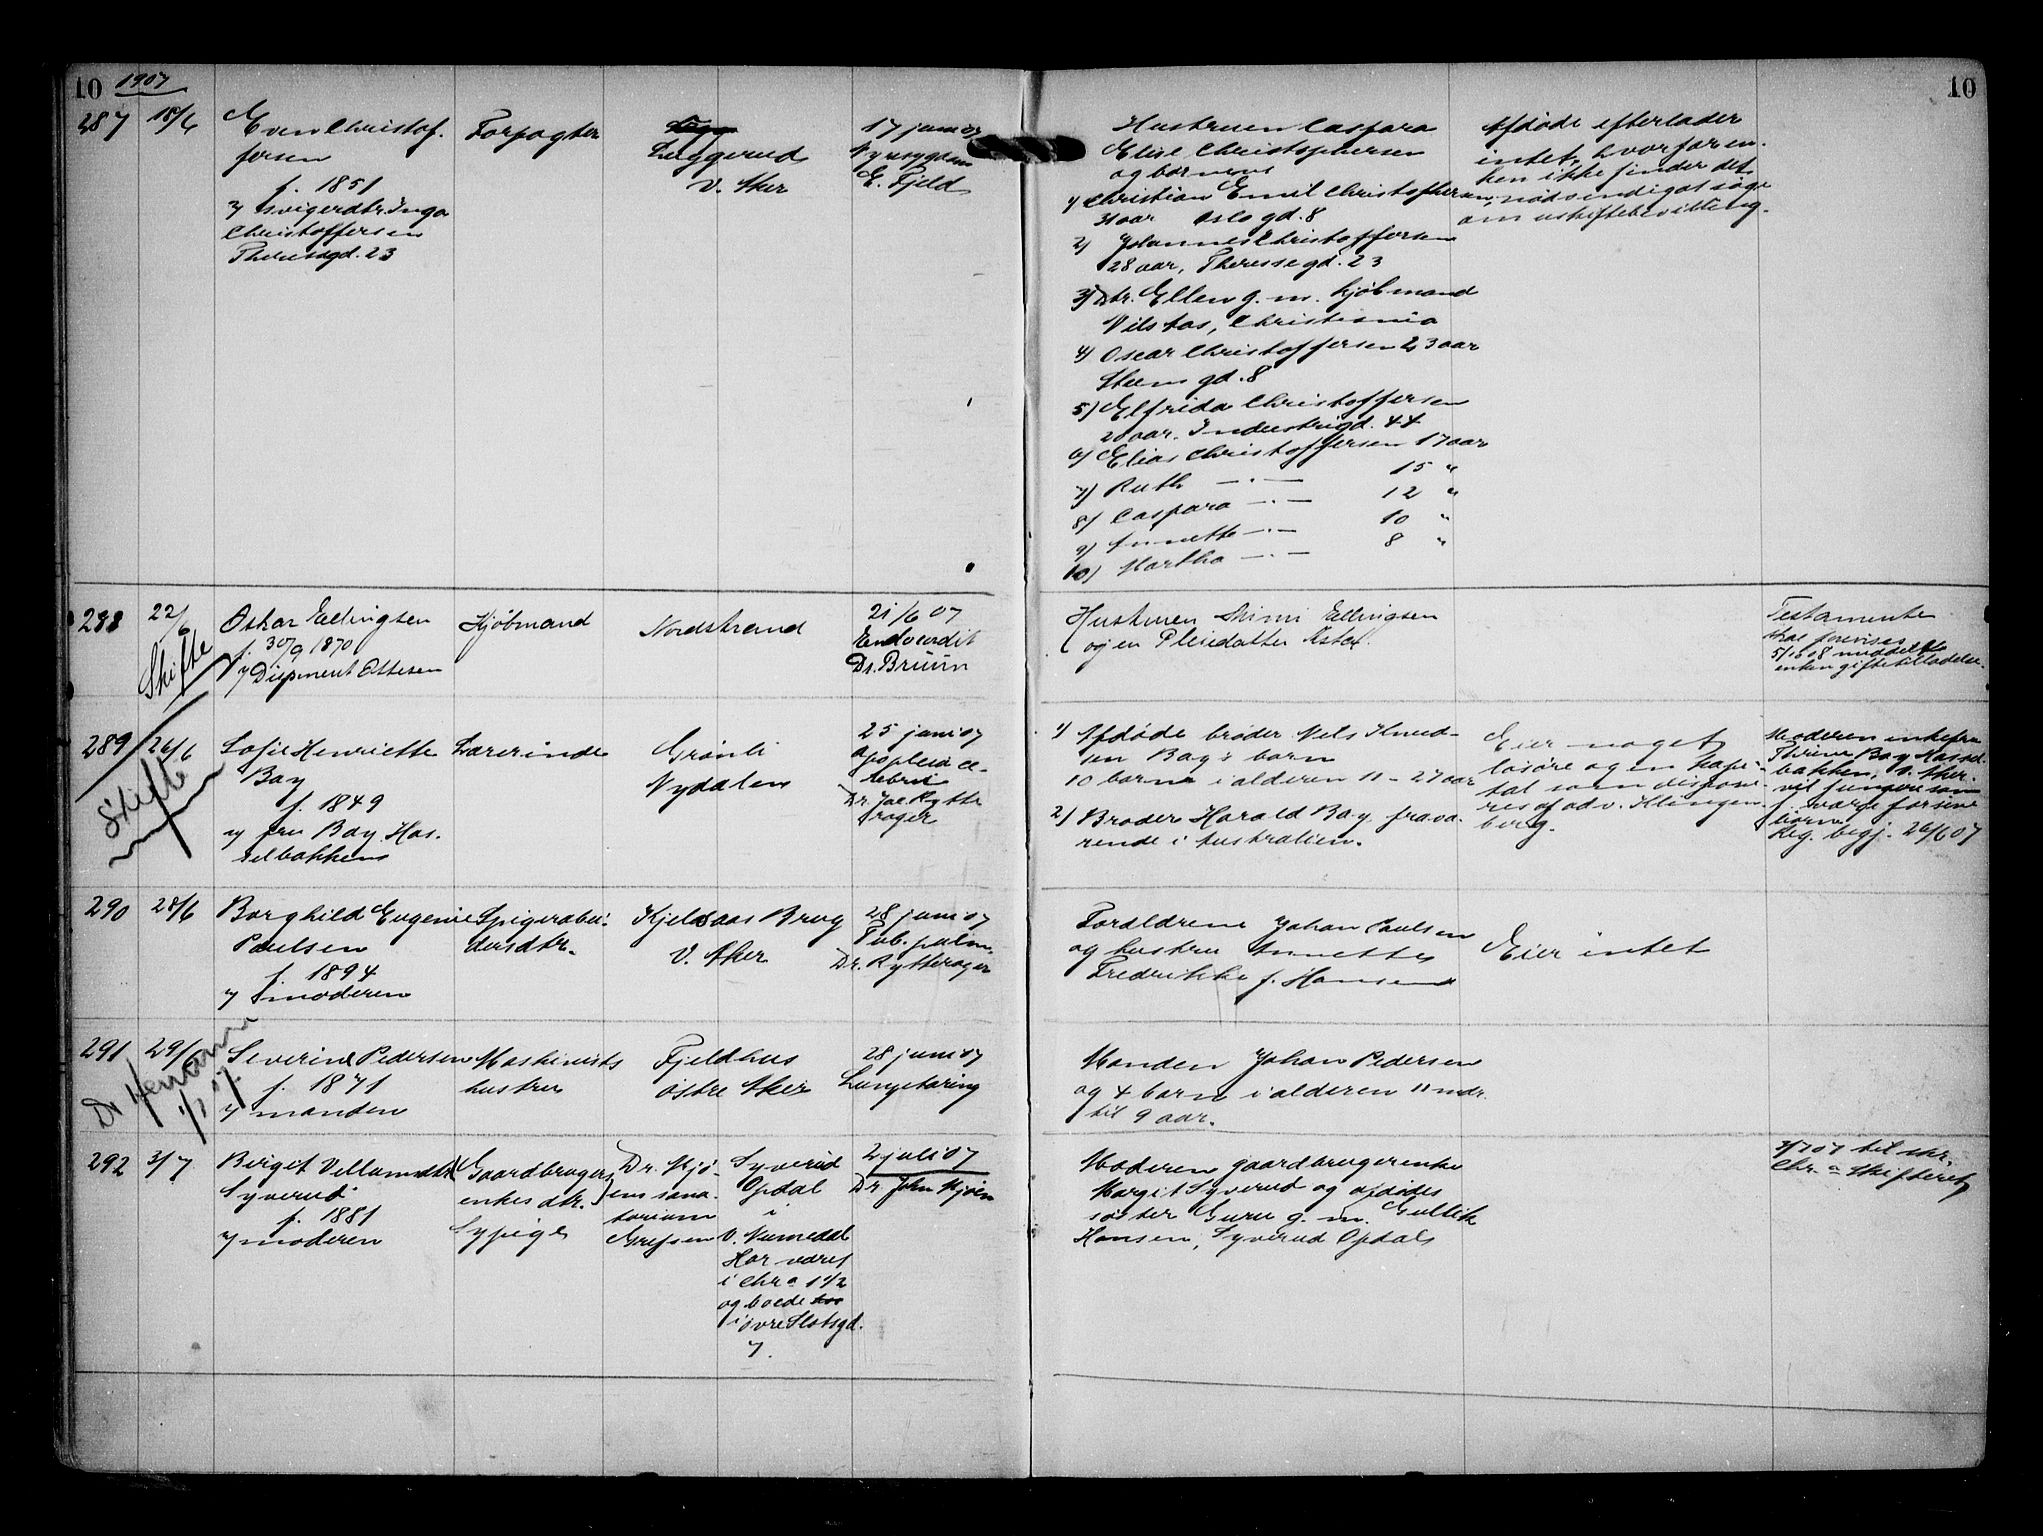 10 1907
287 18/6
Even Christof-
fersen
f. 1851
v/ svigerdtr. Inga
Christoffersen
Theresesgd. 23
Forpagter
Luggerud
V. Aker
17 juni 07
Nyresygdom
E. Fjeld
Hustruen Caspara
Elise Christophersen
og børnene
1) Christian Emil Christoffersen
31 aar Oslo gd. 8
2) Johannes Christoffersen
28 aar, Theresse gd. 23
3) Dtr. Ellen g. m. kjøbmand
Nils Aas, Christiania
4) Oscar Christoffersen 23 aar
Steens gd. 8
5) Elfrida Christoffersen
20 aar. Industrigd. 44
6) Elias Christoffersen 17 aar
7) Ruth —·— 15 "
8) Caspara —·— 12 "
9) Annette —·— 10 "
10) Martha —·— 8 "
Afdøde efterlader
intet, hvorfor en-
ken ikke finder det
nødvendigt at søge
om uskiftebevilling.
10
288 22/6
Skifte
Oskar Ellingsen
f. 30/9 1870
v/ Ottesen
Kjøbmand
Nordstrand
21/6 07
Endocardit
Dr. Bruun
Hustruen Ellingsen
og en Pleiedatter Ester.
Testamente
skal forevises
5/10 08 meddelt
enken giftetilladelse.
289 26/6
Skifte
Sofie Henriette
Bay
f. 1849
v/ fru Bay, Has-
selbakken
Lærerinde
Grønli
Nydalen
25 juni 07
apoplexia ce-
rebri
Dr. Jac Rytte
rager
1) Afdøde broder Nils Knud-
sen Bay's børn
10 børn i alderen 11 - 27 aar
2) Broder Harald Bay, fravæ-
rende i Australien.
Eier noget
løsøre og en kapi-
tal som dispone-
res af adv. Klingen
berg.
Moderen enkefru
Thrine Bay Hassel-
bakken, V. Aker.
vil fungere som
f. værge for sine
børn
Reg. begj. 26/6 07
290 28/6
Borghild Eugenie
Paulsen
f. 1894
v/ moderen
Spigerarbei-
dersdtr.
Kjelsaas Brug
V. Aker
28 juni 07
Tub. pulm.
Dr. Rytterager
Forældrene Johan Paulsen
og hustru Annette
Fredrikke f. Hansen
Eier intet
291 29/6
Dr Hermann
1/7 07.
Severine Pedersen
f. 1871
v/ manden
Maskinists
hustru
Fjeldhus
østre Aker
28 juni 07
Lungetæring
Manden Johan Pedersen
og 4 børn i alderen 11 mdr.
til 9 aar.
292 3/7
Birgit Villumsdtr.
Syverud
f. 1881
v/ moderen
Gaardbruger-
enkes dtr.
Sypige
Dr. Mjø-
ens sana-
torium
Grefsen
Syverud
Opdal
i
V. Numedal
Har været
i Chra 1 1/2
og boede
i øvre Slotsgd.
7.
2 juli 07
Dr John Mjøen
Moderen gaardbrugerenke
Margit Syverud og afdødes
søster Guru g. m. Gullik
Hansen, Syverud Opdal
3/7 07 til skr.
Chr.a Skifteret